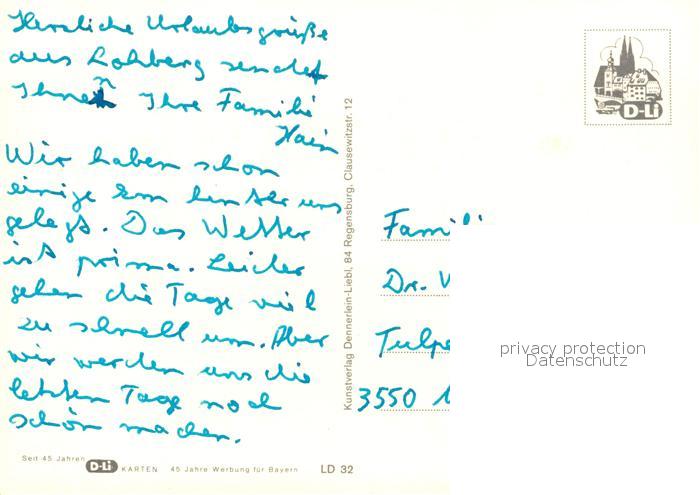 Herzliche Urlaubsgrüße
aus Lohberg sendet
Ihnen Ihre Familie
Hain
Wir haben schon
einige km hinter uns
gelegt. Das Wetter
ist prima. Leider
gehen die Tage viel
zu schnell um. Aber
wir werden uns die
letzten Tage noch
schön machen.
Seit 45 Jahren
D-Li KARTEN 45 Jahre Werbung für Bayern LD 32
Kunstverlag Dennerlein-Liebl, 84 Regensburg, Clausewitzstr. 12
D-Li
Famili
Dr.
Tulpe
3550
privacy protection
Datenschutz